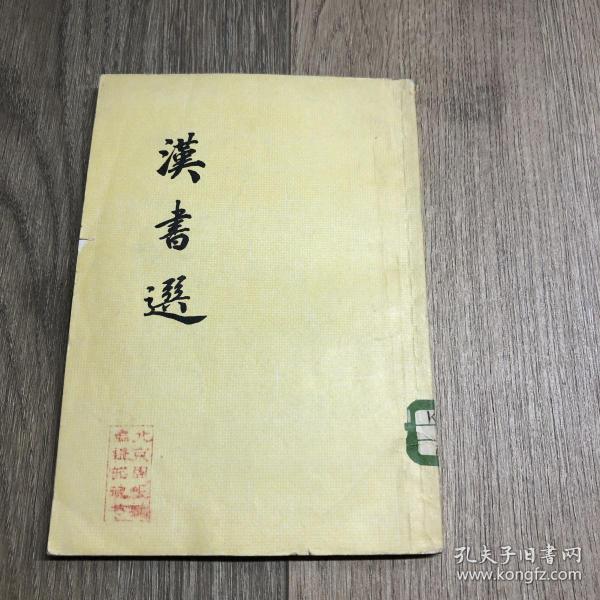 漢書選
K
孔夫子旧書网
www.kongfz.com